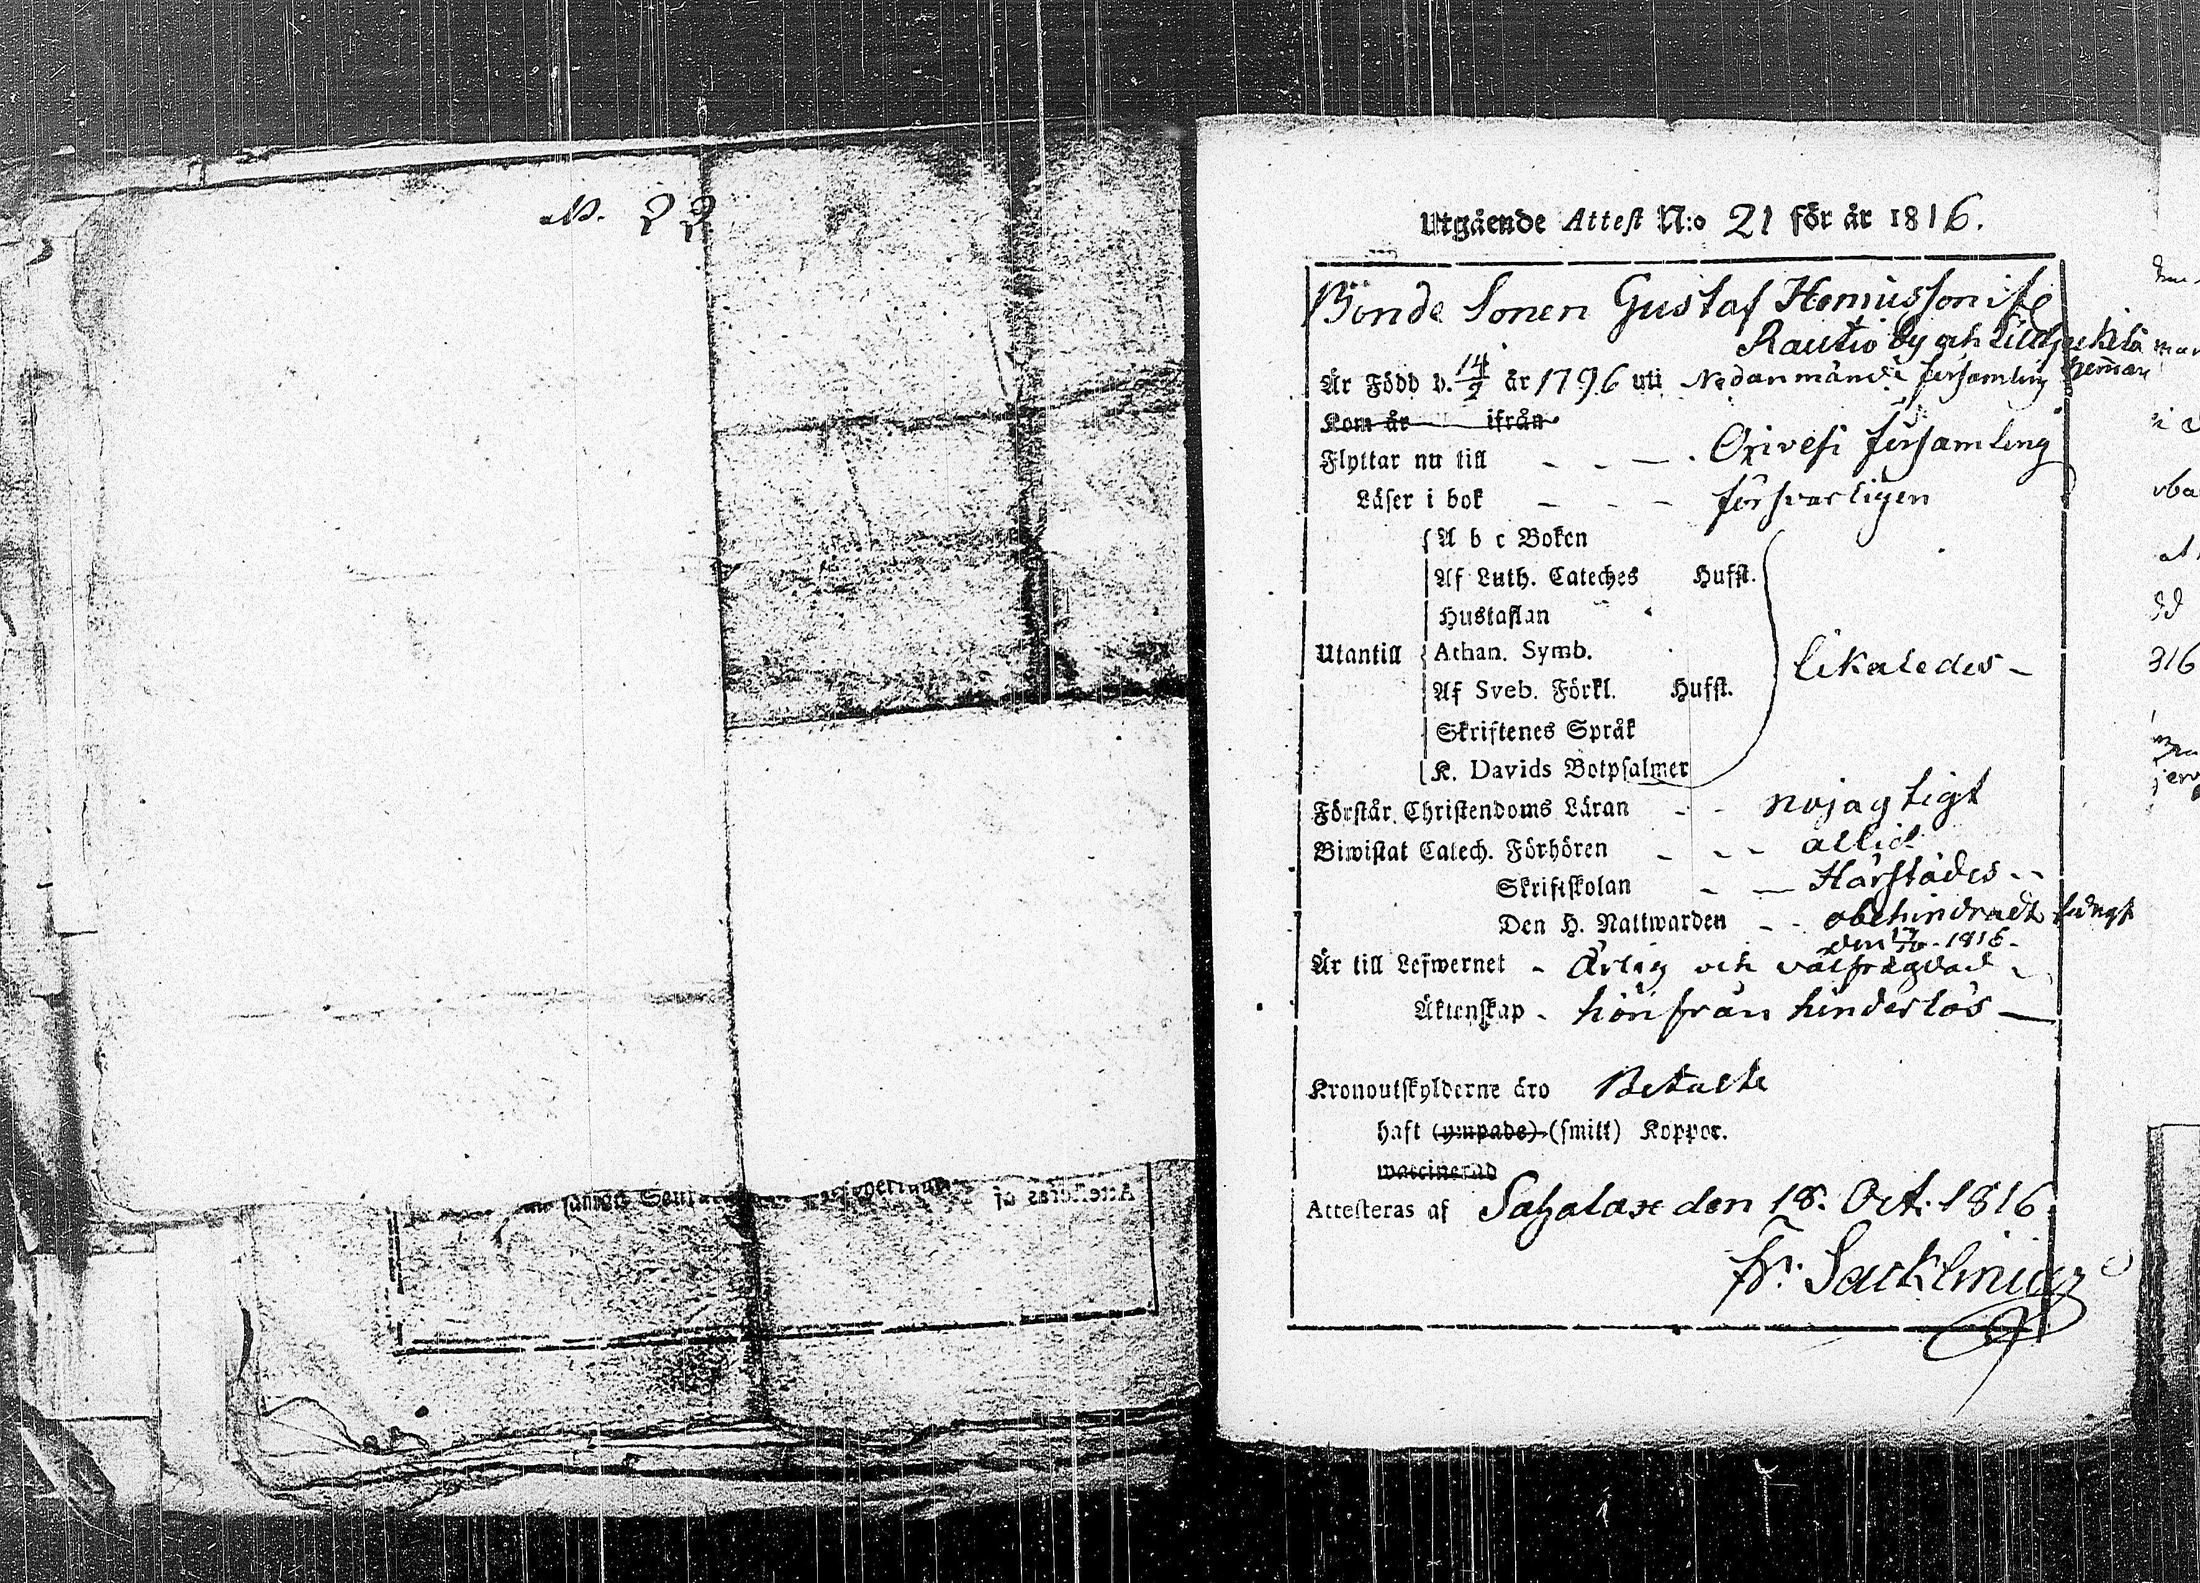 N. 22
Utgående Attest N:o 21 för år 1816.
Bonde Sonen Gustaf
Rautio by och
Är Född d. 14/2 år 1796 uti Nedanmände församling
Kom år ifrån
Flyttar nu till - - - Orivesi församling
Läser i bok - - - försvarligen
A b c Boken
Af Luth. Cateches Hufst.
Hustaflan
Utantill Athan. Symb. likaledes -
Af Sveb. Förkl. Hufst.
Skriftenes Språk
K. Davids Botpsalmer
Förstår Christendoms Läran - - nojagtigt
Biwistat Catech. Förhören - - - altid
Skriftskolan - - Härstädes - -
Den H. Nattwarden - - obehindradt
1816 -
Är till Lefwernet - Ärlig och välfrägdad -
Äktenskap - hinderlös -
Kronoutskylderne äro Betalte
haft (ympade) (smitt) Koppor.
waccinerad
Attesteras af Sahalax den 18. Oct. 1816
Fr. Sacklinius
Attesteras af